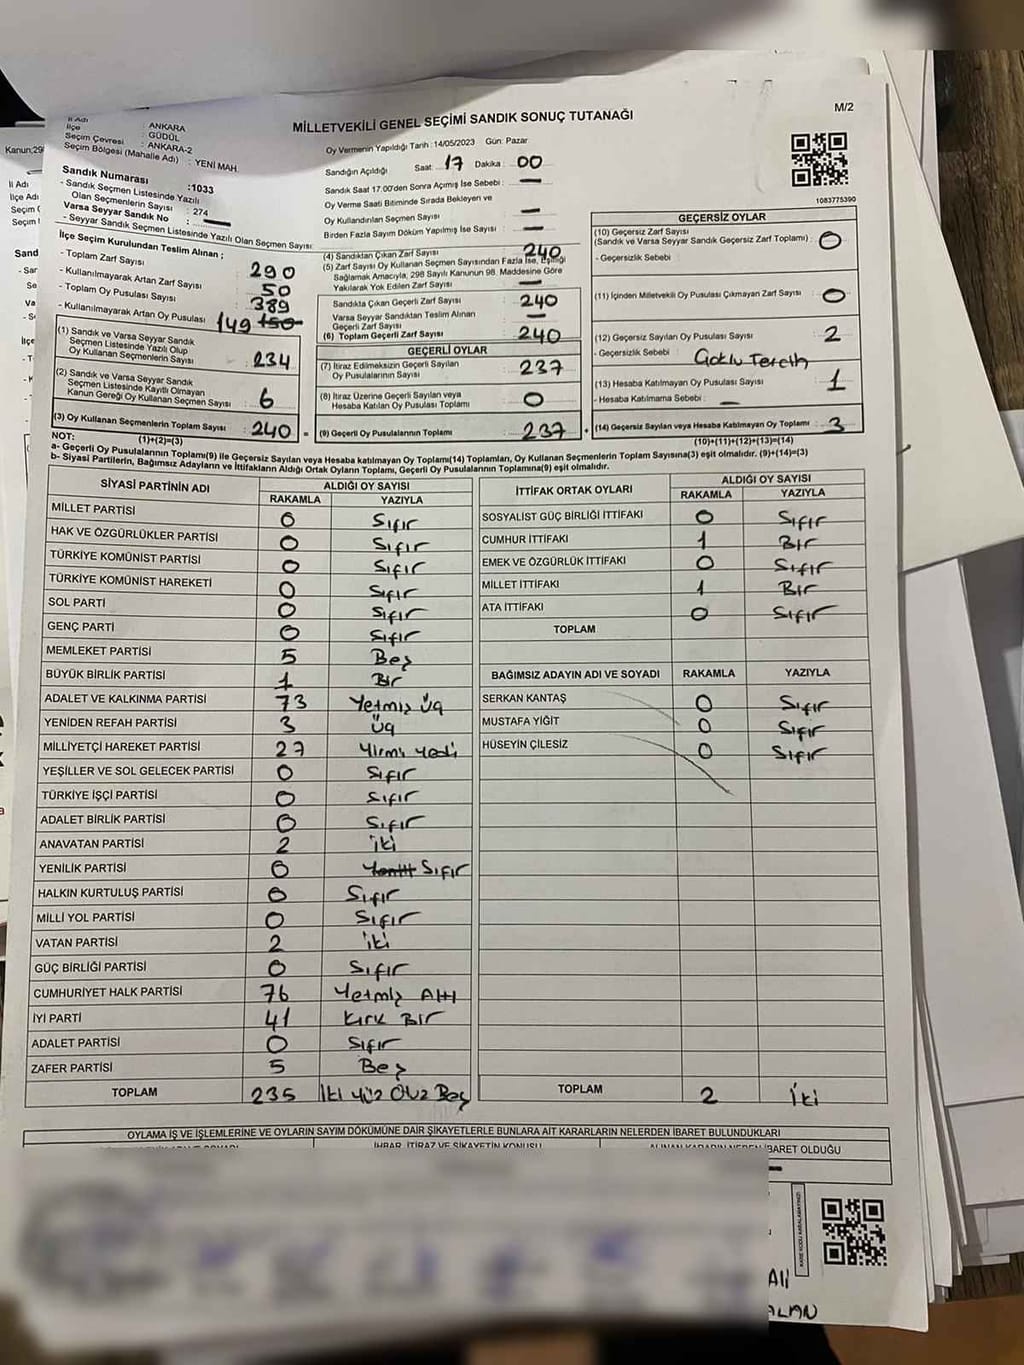 M/2
MİLLETVEKİLİ GENEL SEÇİMİ SANDIK SONUÇ TUTANAĞI
İl Adı : ANKARA
İlçe : GÜDÜL
Seçim Çevresi : ANKARA-2
Seçim Bölgesi (Mahalle Adı) : YENİ MAH.
Sandık Numarası :1033
- Sandık Seçmen Listesinde Yazılı
Olan Seçmenlerin Sayısı : 274
Varsa Seyyar Sandık No : —
- Seyyar Sandık Seçmen Listesinde Yazılı Olan Seçmen Sayısı:
İlçe Seçim Kurulundan Teslim Alınan ;
- Toplam Zarf Sayısı 290
- Kullanılmayarak Artan Zarf Sayısı 50
- Toplam Oy Pusulası Sayısı 389
- Kullanılmayarak Artan Oy Pusulası 149 150
(1) Sandık ve Varsa Seyyar Sandık
Seçmen Listesinde Yazılı Olup
Oy Kullanan Seçmenlerin Sayısı 234
(2) Sandık ve Varsa Seyyar Sandık
Seçmen Listesinde Kayıtlı Olmayan
Kanun Gereği Oy Kullanan Seçmen Sayısı 6
(3) Oy Kullanan Seçmenlerin Toplam Sayısı 240
(1)+(2)=(3)
Oy Vermenin Yapıldığı Tarih : 14/05/2023 Gün: Pazar
Sandığın Açıldığı Saat: 17 Dakika : 00
Sandık Saat 17.00'den Sonra Açılmış İse Sebebi : —
Oy Verme Saati Bitiminde Sırada Bekleyen ve
Oy Kullandırılan Seçmen Sayısı —
Birden Fazla Sayım Döküm Yapılmış İse Sayısı : —
(4) Sandıktan Çıkan Zarf Sayısı 240
(5) Zarf Sayısı Oy Kullanan Seçmen Sayısından Fazla İse, Eşitliği
Sağlamak Amacıyla, 298 Sayılı Kanunun 98. Maddesine Göre
Yakılarak Yok Edilen Zarf Sayısı —
Sandıkta Çıkan Geçerli Zarf Sayısı 240
Varsa Seyyar Sandıktan Teslim Alınan
Geçerli Zarf Sayısı —
(6) Toplam Geçerli Zarf Sayısı 240
GEÇERLİ OYLAR
(7) İtiraz Edilmeksizin Geçerli Sayılan
Oy Pusulalarının Sayısı 237
(8) İtiraz Üzerine Geçerli Sayılan veya
Hesaba Katılan Oy Pusulası Toplamı 0
(9) Geçerli Oy Pusulalarının Toplamı 237
1083775390
GEÇERSİZ OYLAR
(10) Geçersiz Zarf Sayısı
(Sandık ve Varsa Seyyar Sandık Geçersiz Zarf Toplamı) : 0
- Geçersizlik Sebebi
(11) İçinden Milletvekili Oy Pusulası Çıkmayan Zarf Sayısı 0
(12) Geçersiz Sayılan Oy Pusulası Sayısı 2
- Geçersizlik Sebebi : Çoklu Tercih
(13) Hesaba Katılmayan Oy Pusulası Sayısı 1
- Hesaba Katılmama Sebebi : —
(14) Geçersiz Sayılan veya Hesaba Katılmayan Oy Toplamı 3
(10)+(11)+(12)+(13)=(14)
NOT:
a- Geçerli Oy Pusulalarının Toplamı(9) ile Geçersiz Sayılan veya Hesaba katılmayan Oy Toplamı(14) Toplamları, Oy Kullanan Seçmenlerin Toplam Sayısına(3) eşit olmalıdır. (9)+(14)=(3)
b- Siyasi Partilerin, Bağımsız Adayların ve İttifakların Aldığı Ortak Oyların Toplamı, Geçerli Oy Pusulalarının Toplamına(9) eşit olmalıdır.
SİYASİ PARTİNİN ADI ALDIĞI OY SAYISI
RAKAMLA YAZIYLA
MİLLET PARTİSİ 0 Sıfır
HAK VE ÖZGÜRLÜKLER PARTİSİ 0 Sıfır
TÜRKİYE KOMÜNİST PARTİSİ 0 Sıfır
TÜRKİYE KOMÜNİST HAREKETİ 0 Sıfır
SOL PARTİ 0 Sıfır
GENÇ PARTİ 0 Sıfır
MEMLEKET PARTİSİ 5 Beş
BÜYÜK BİRLİK PARTİSİ 1 Bir
ADALET VE KALKINMA PARTİSİ 73 Yetmiş Üç
YENİDEN REFAH PARTİSİ 3 Üç
MİLLİYETÇİ HAREKET PARTİSİ 27 Yirmi Yedi
YEŞİLLER VE SOL GELECEK PARTİSİ 0 Sıfır
TÜRKİYE İŞÇİ PARTİSİ 0 Sıfır
ADALET BİRLİK PARTİSİ 0 Sıfır
ANAVATAN PARTİSİ 2 İki
YENİLİK PARTİSİ 0 Sıfır
HALKIN KURTULUŞ PARTİSİ 0 Sıfır
MİLLİ YOL PARTİSİ 0 Sıfır
VATAN PARTİSİ 2 İki
GÜÇ BİRLİĞİ PARTİSİ 0 Sıfır
CUMHURİYET HALK PARTİSİ 76 Yetmiş Altı
İYİ PARTİ 41 Kırk Bir
ADALET PARTİSİ 0 Sıfır
ZAFER PARTİSİ 5 Beş
TOPLAM 235 İki Yüz Otuz Beş
İTTİFAK ORTAK OYLARI ALDIĞI OY SAYISI
RAKAMLA YAZIYLA
SOSYALİST GÜÇ BİRLİĞİ İTTİFAKI 0 Sıfır
CUMHUR İTTİFAKI 1 Bir
EMEK VE ÖZGÜRLÜK İTTİFAKI 0 Sıfır
MİLLET İTTİFAKI 1 Bir
ATA İTTİFAKI 0 Sıfır
TOPLAM
BAĞIMSIZ ADAYIN ADI VE SOYADI RAKAMLA YAZIYLA
SERKAN KANTAŞ 0 Sıfır
MUSTAFA YİĞİT 0 Sıfır
HÜSEYİN ÇİLESİZ 0 Sıfır
TOPLAM 2 İki
OYLAMA İŞ VE İŞLEMLERİNE VE OYLARIN SAYIM DÖKÜMÜNE DAİR ŞİKAYETLERLE BUNLARA AİT KARARLARIN NELERDEN İBARET BULUNDUKLARI
İHBAR, İTİRAZ VE ŞİKAYETİN KONUSU
ALINAN KARARIN NEDEN İBARET OLDUĞU
KARE KODU KARALAMAYINIZ!
Ali